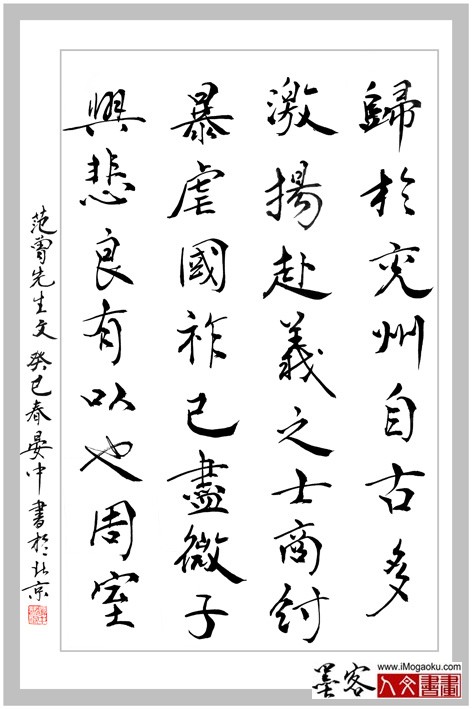 歸於兗州自古多
激揚赴義之士商紂
暴虐國祚已盡微子
興悲良有以也周室
范曾先生文 癸巳春晏中書於北京
墨客
www.iMogaoku.com
人文書畫